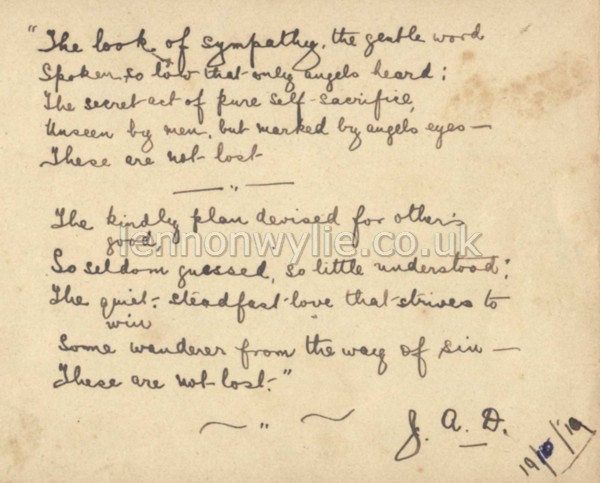 "The look of sympathy, the gentle word
Spoken so low that only angels heard;
The secret act of pure self-sacrifice,
Unseen by men, but marked by angels eyes—
These are not lost
The kindly plan devised for other's
good,
So seldom guessed, so little understood;
The quiet- steadfast love that strives to
win
Some wanderer from the way of sin—
These are not lost."
J. A. D.
19/10/19
lennonwylie.co.uk